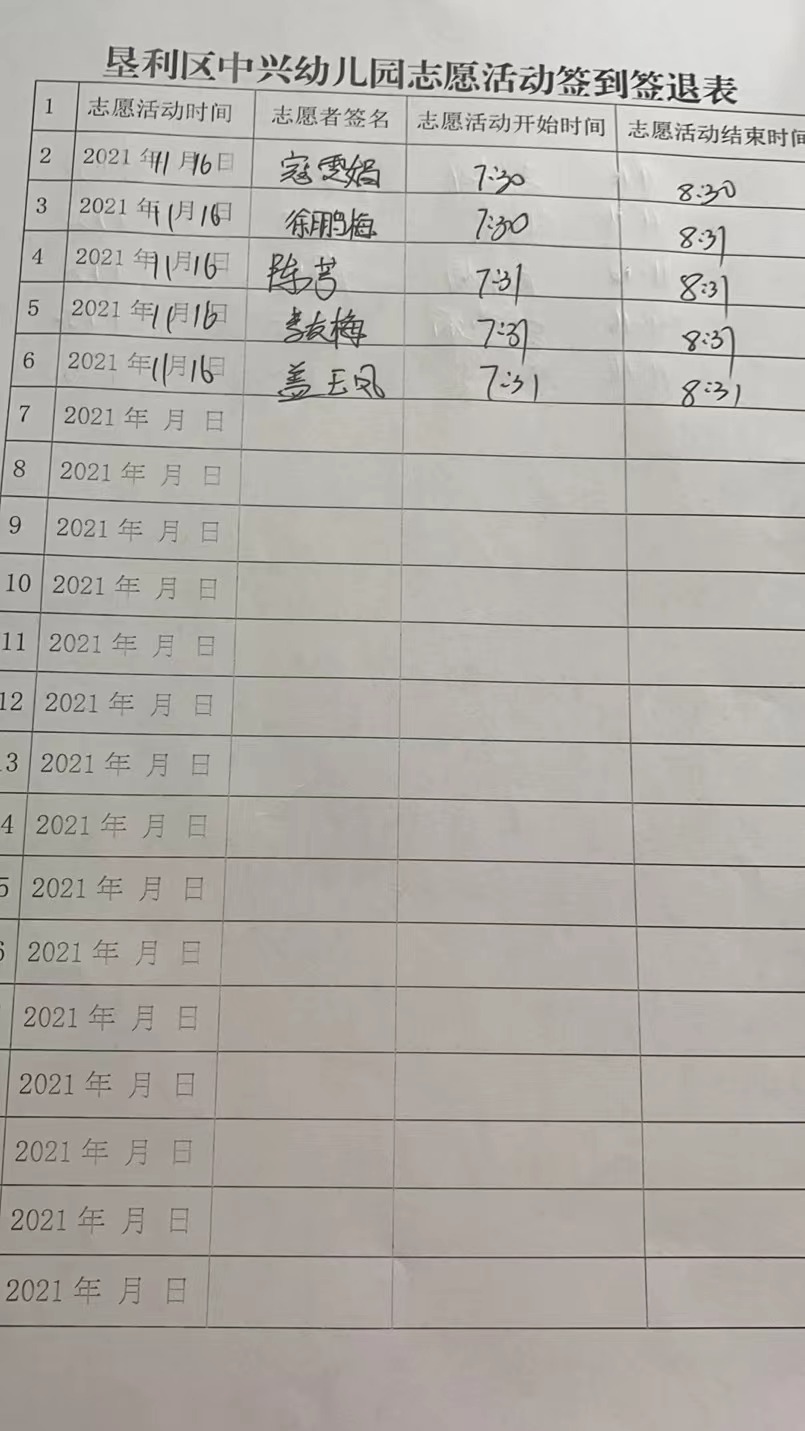 垦利区中兴幼儿园志愿活动签到签退表
1 志愿活动时间 志愿者签名 志愿活动开始时间 志愿活动结束时间
2 2021 年 11 月 16 日 寇雯娟 7:30 8:30
3 2021 年 11 月 16 日 徐鹏梅 7:30 8:31
4 2021 年 11 月 16 日 陈芳 7:31 8:31
5 2021 年 11 月 16 日 李友梅 7:31 8:31
6 2021 年 11 月 16 日 盖玉凤 7:31 8:31
7 2021 年 月 日
8 2021 年 月 日
9 2021 年 月 日
10 2021 年 月 日
11 2021 年 月 日
12 2021 年 月 日
3 2021 年 月 日
4 2021 年 月 日
5 2021 年 月 日
6 2021 年 月 日
2021 年 月 日
2021 年 月 日
2021 年 月 日
2021 年 月 日
2021 年 月 日